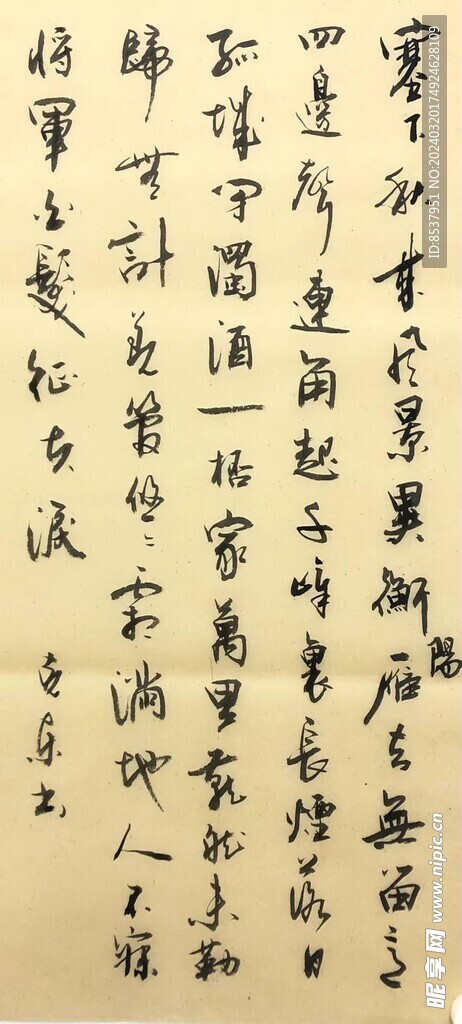 塞下秋来风景異衡陽雁去無留意
四邊聲連角起千嶂裏長煙落日
孤城闭濁酒一杯家萬里燕然未勒
歸無計羌管悠〻霜满地人不寐
将軍白髮征夫淚
书
ID:8537951 NO:20240320174924628109
昵享网 www.nipic.cn